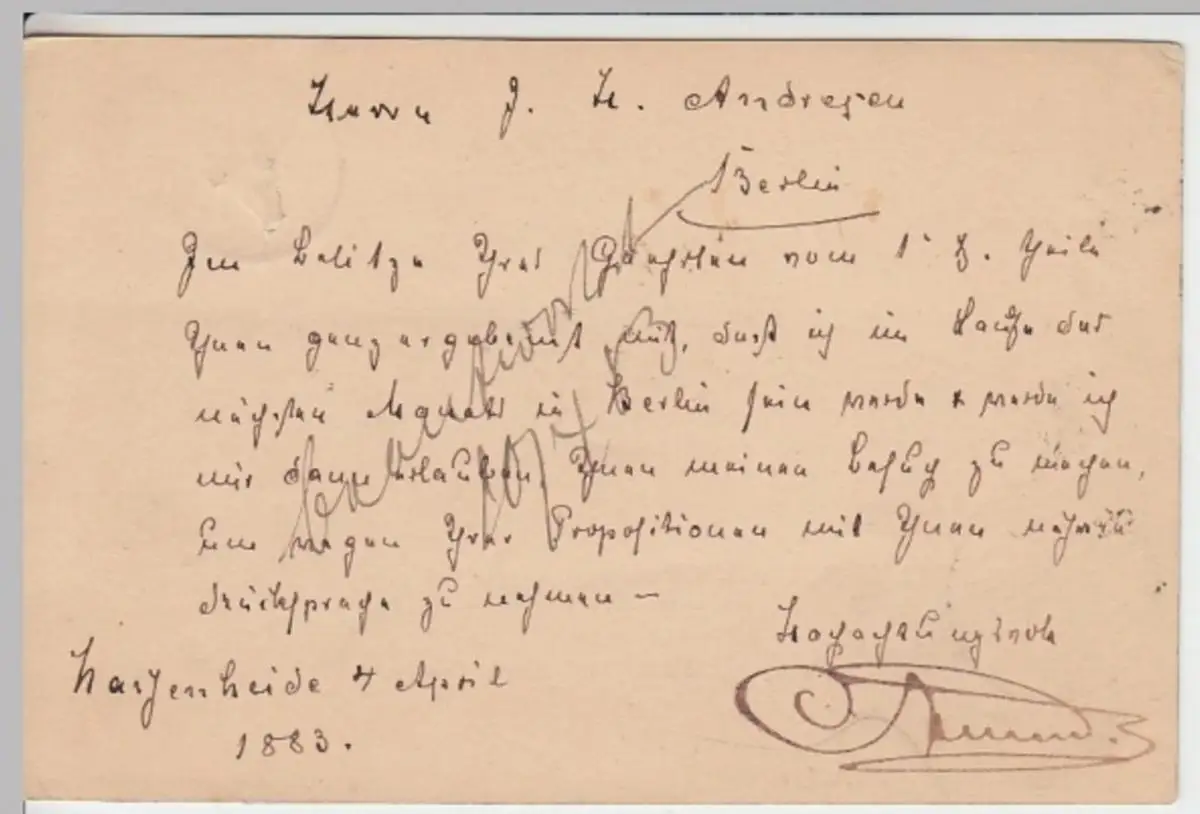 Herrn J. H. Andresen
Berlin
Im Besitze Ihres Geehrten vom 1 d. theile
Ihnen ganz ergebenst mit, daß ich im Laufe des
nächsten Monats in Berlin sein werde & werde ich
mir dann erlauben, Ihnen meinen Besuch zu machen,
um wegen Ihrer Propositionen mit Ihnen nähere
Rücksprache zu nehmen –
Hochachtungsvoll
4 April
1883.